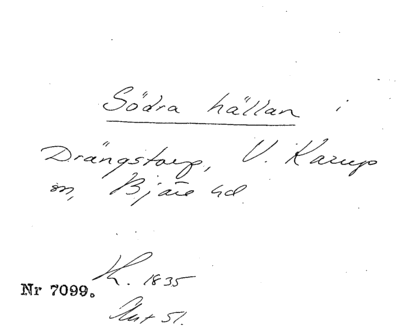 Södra hällan i
Drängstorp, V. Karup
sn, Bjäre hd
Nr 7099.
K. 1835
Akt 51.